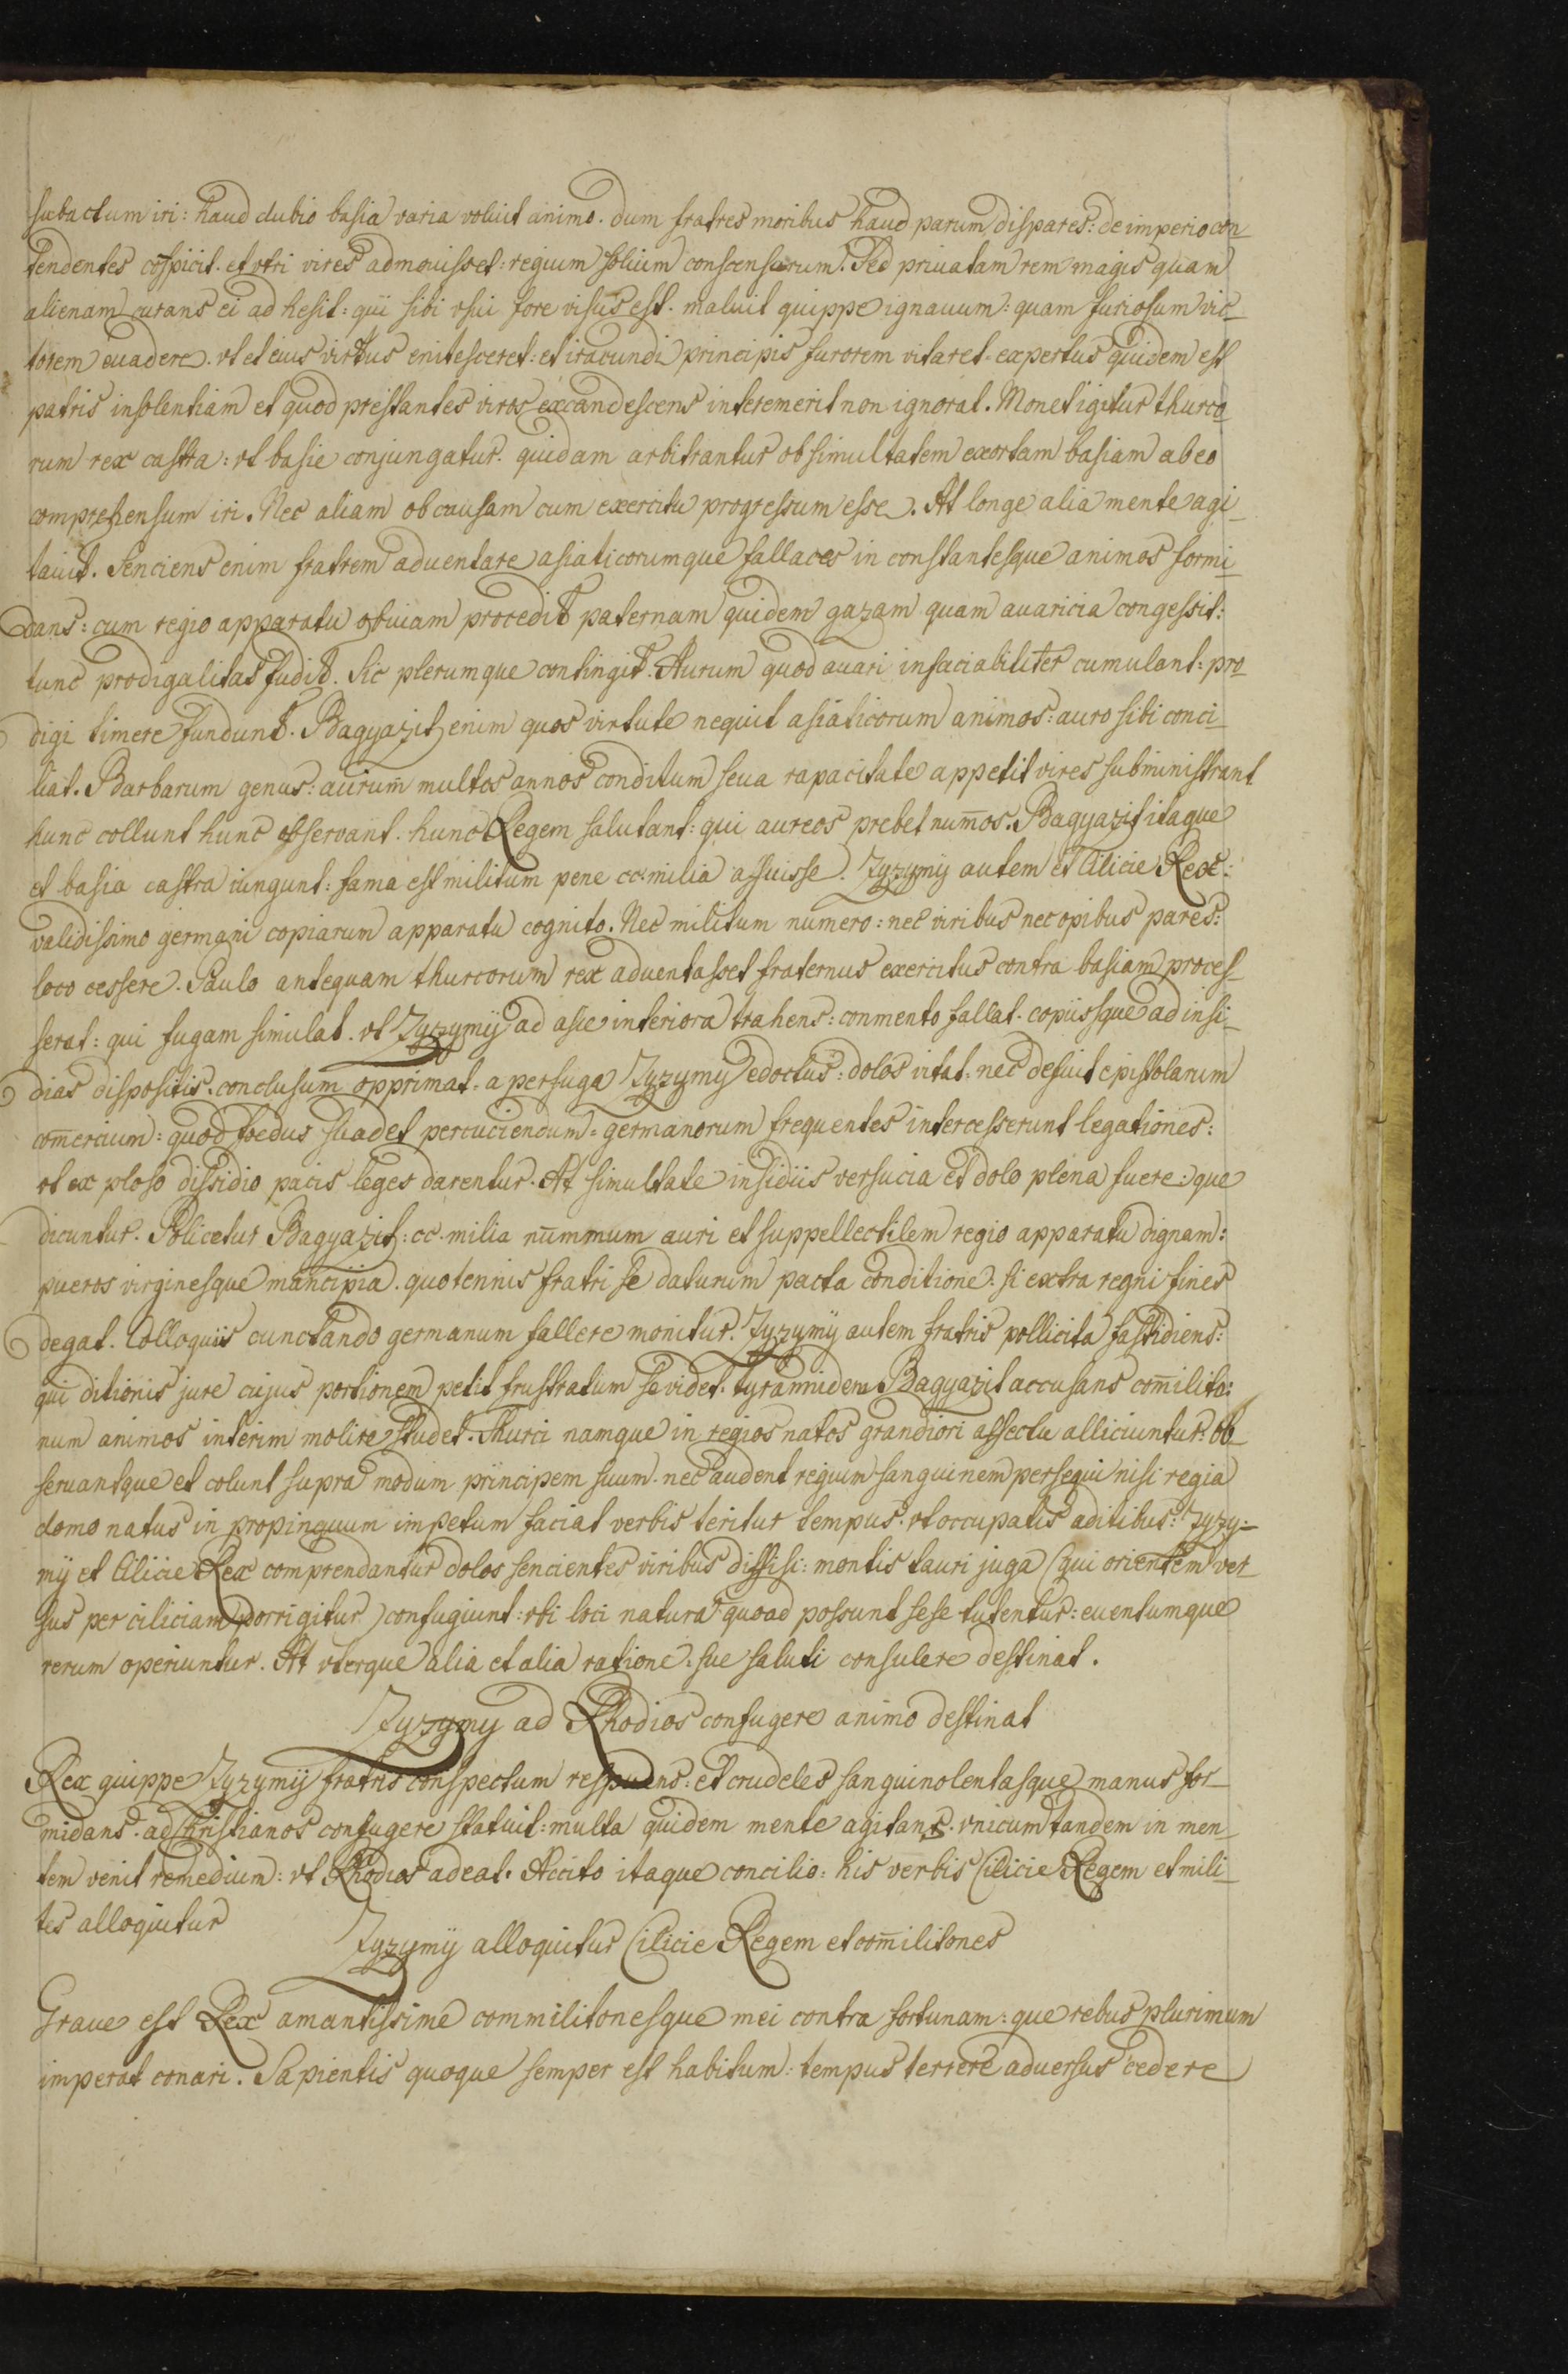 subactum iri: haud dubio basia varia voluit animo. dum fratres moribus haud parum dispares: de imperio con_
tendentes cōspicit. et vtri vires admouisset: regium solium conscensurum. Sed priuatam rem magis quam
alienam curans ei ad hesit: qui sibi vsui fore visus est. maluit quippe ignauum: quam furiosum vic_
torem euadere. vt et eius virtus enitesceret: et iracundi principis furorem vitaret. expertus quidem est
patris insolentiam et quod prestantes viros excandescens interemerit non ignorat. Monet igitur thurco_
rum rex castra: vt basie conjungatur. quidam arbitrantur ob simultatem exortam basiam ab eo
comprehensum iri. Nec aliam ob causam cum exercitu progressum esse. At longe alia mente agi_
tauit. Senciens enim fratrem aduentare asiaticorumque fallaces in constantesque animos formi_
dans: cum regio apparatu obuiam procedit paternam quidem gazam quam auaricia congessit:
tunc prodigalitas fudit. Sic plerumque contingit. Aurum quod auari insaciabiliter cumulant: pro_
digi timere fundunt. Bagyazit enim quos virtute nequit asiaticorum animos: auro sibi conci_
liat. Barbarum genus: aurum multos annos conditum seua rapacitate appetit vires subministrant
hunc collunt hunc observant. hunc Regem salutant: qui aureos prebet num̄os. Bagyazit itaque
et basia castra iungunt: fama est militum pene cc milia affuisse. Zyzymij autem et Cilicie Rex:
validissimo germani copiarum apparatu cognito. Nec militum numero: nec viribus nec opibus pares:
loco cessere. Paulo antequam thurcorum rex aduentasset fraternus exercitus contra basiam proces_
serat: qui fugam simulat. vt Zyzymij ad asie interiora trahens: conmento fallat. copiisque ad insi_
dias dispositis. conclusum opprimat. a perfuga Zyzymy edoctus: dolos vitat. nec defuit epistolarum
com̄ercium: quod foedus suadet percuciendum. germanorum frequentes intercesserunt legationes:
vt ex ploso dissidio pacis leges darentur. At simultate insidiis versucia et dolo plena fuere: que
dicuntur. Policetur Bagyazit: cc. milia nummum auri et suppellectilem regio apparatu dignam:
pueros virginesque mancipia. quotennis fratri se daturum pacta conditione. si extra regni fines
degat. Colloquiis cunctando germanum fallere monitur. Zyzymij autem fratris pollicita fastidiens:
qui ditionis jure cujus portionem petit frustratum se videt. tyrannidem Bagyazit accusans com̄ilito:
num animos interim molire studet. Thurci namque in regios natos grandiori affectu alliciuntur. ob_
seruantque et colunt supra modum principem suum. nec audent regium sanguinem persequi nisi regia
domo natus in propinquum impetum faciat verbis teritur tempus. vt occupatis aditibus: Zyzy:_
mij et Cilicie Rex comprendantur dolos sencientes viribus diffisi: montis tauri juga (qui orientem ver_
sus per ciliciam porrigitur) confugiunt: vbi loci natura quoad possunt sese tutentur: euentumque
rerum operiuntur. At vterque alia et alia ratione. sue saluti consulere destinat.
Zyzymy ad Rhodios confugere animo destinat
Rex quippe Zyzymij fratris conspectum respuens: et crudeles sanguinolentasque manus for_
midans. ad christianos confugere statuit: multa quidem mente agitans. vnicum tandem in men_
tem venit remedium: vt Rhodios adeat. Accito itaque concilio: his verbis Cilicie Regem et mili_
tes alloquitur
Zyzymij alloquitur Cilicie Regem et com̄ilitones
Graue est Rex amantissime commilitonesque mei contra fortunam: que rebus plurimum
imperat conari. Sapientis quoque semper est habitum: tempus terrere aduersus cedere